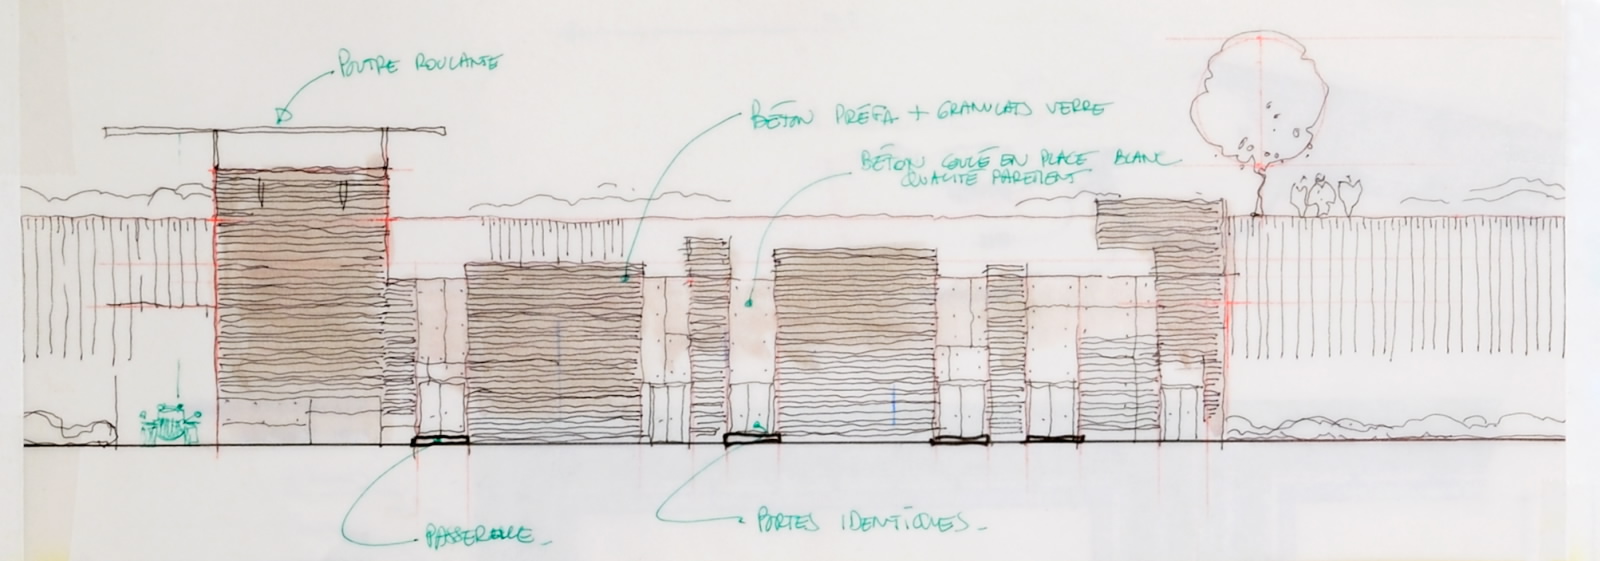 POUTRE ROULANTE
BÉTON PRÉFA + GRANULATS VERRE
BÉTON COULÉ EN PLACE BLANC
QUALITÉ PAREMENT
PASSERELLE_
PORTES IDENTIQUES_